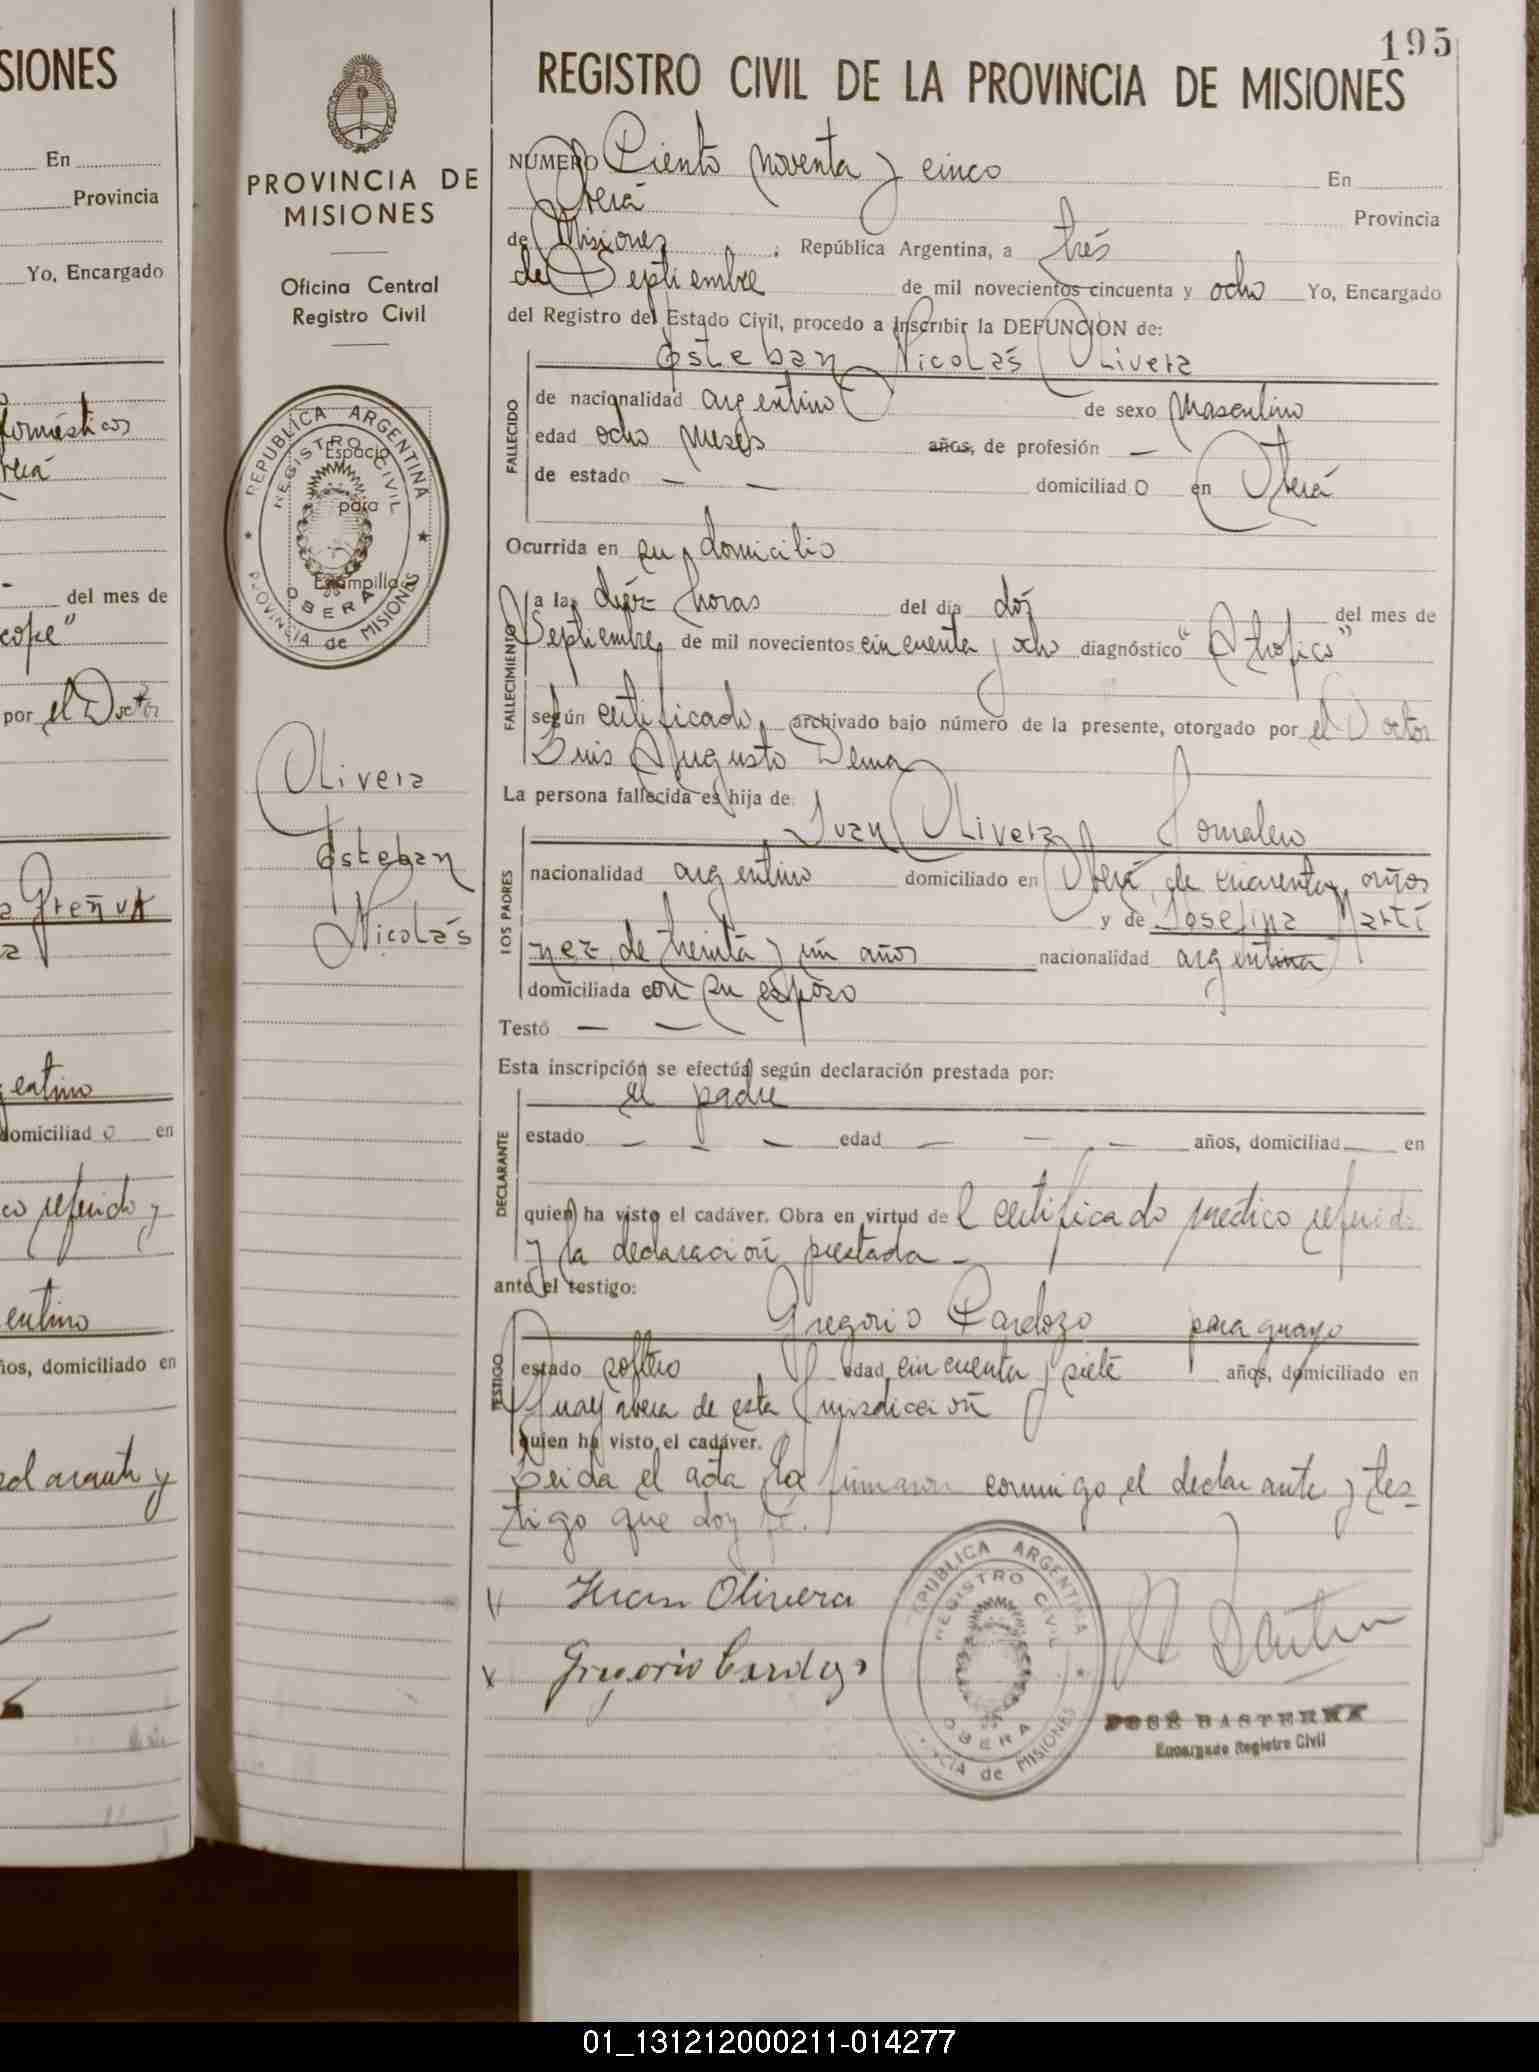 195
SIONES
En
Provincia
Yo, Encargado
domésticos
del mes de
por el Doctor
Greñuk
entino
domiciliado en
co referido y
entino
ños, domiciliado en
clarante y
PROVINCIA DE
MISIONES
Oficina Central
Registro Civil
REPUBLICA ARGENTINA
REGISTRO CIVIL
Espacio
para
Estampilla
OBERA
PROVINCIA de MISIONES
Olivera
Esteban
Nicolás
REGISTRO CIVIL DE LA PROVINCIA DE MISIONES
NUMERO Ciento noventa y cinco En
Oberá Provincia
de Misiones, República Argentina, a trés
de Septiembre de mil novecientos cincuenta y ocho Yo, Encargado
del Registro del Estado Civil, procedo a inscribir la DEFUNCION de:
Esteban Nicolás Olivera
FALLECIDO
de nacionalidad argentino de sexo Masculino
edad ocho meses años, de profesión —
de estado — — domiciliado en Oberá
Ocurrida en su domicilio
FALLECIMIENTO
a las diéz horas del día dos del mes de
Septiembre, de mil novecientos cincuenta y ocho diagnóstico "Atrofico"
según certificado, archivado bajo número de la presente, otorgado por el Doctor
Luis Augusto Dema
La persona fallecida es hija de:
LOS PADRES
Juan Olivera Jornalero
nacionalidad argentino domiciliado en Oberá, de cuarenta años
y de Josefina Martí
nez, de treinta y un años nacionalidad argentina
domiciliada con su esposo
Testó — —
Esta inscripción se efectúa según declaración prestada por:
DECLARANTE
el padre
estado — — — edad — — — años, domiciliad en
quien ha visto el cadáver. Obra en virtud del certificado médico referido
y la declaración prestada -
ante el testigo:
TESTIGO
Gregorio Cardozo paraguayo
estado soltero edad, cincuenta y siete años, domiciliado en
Guayabera de esta Jurisdicción
quien ha visto el cadáver.
Leida el acta, la firmaron conmigo el declarante y tes-
tigo que doy fé.
Juan Olivera
Gregorio Cardozo
REPUBLICA ARGENTINA
REGISTRO CIVIL
OBERA
CIA de MISIONES
JOSÉ BASTERRA
Encargado Registro Civil
01_131212000211-014277